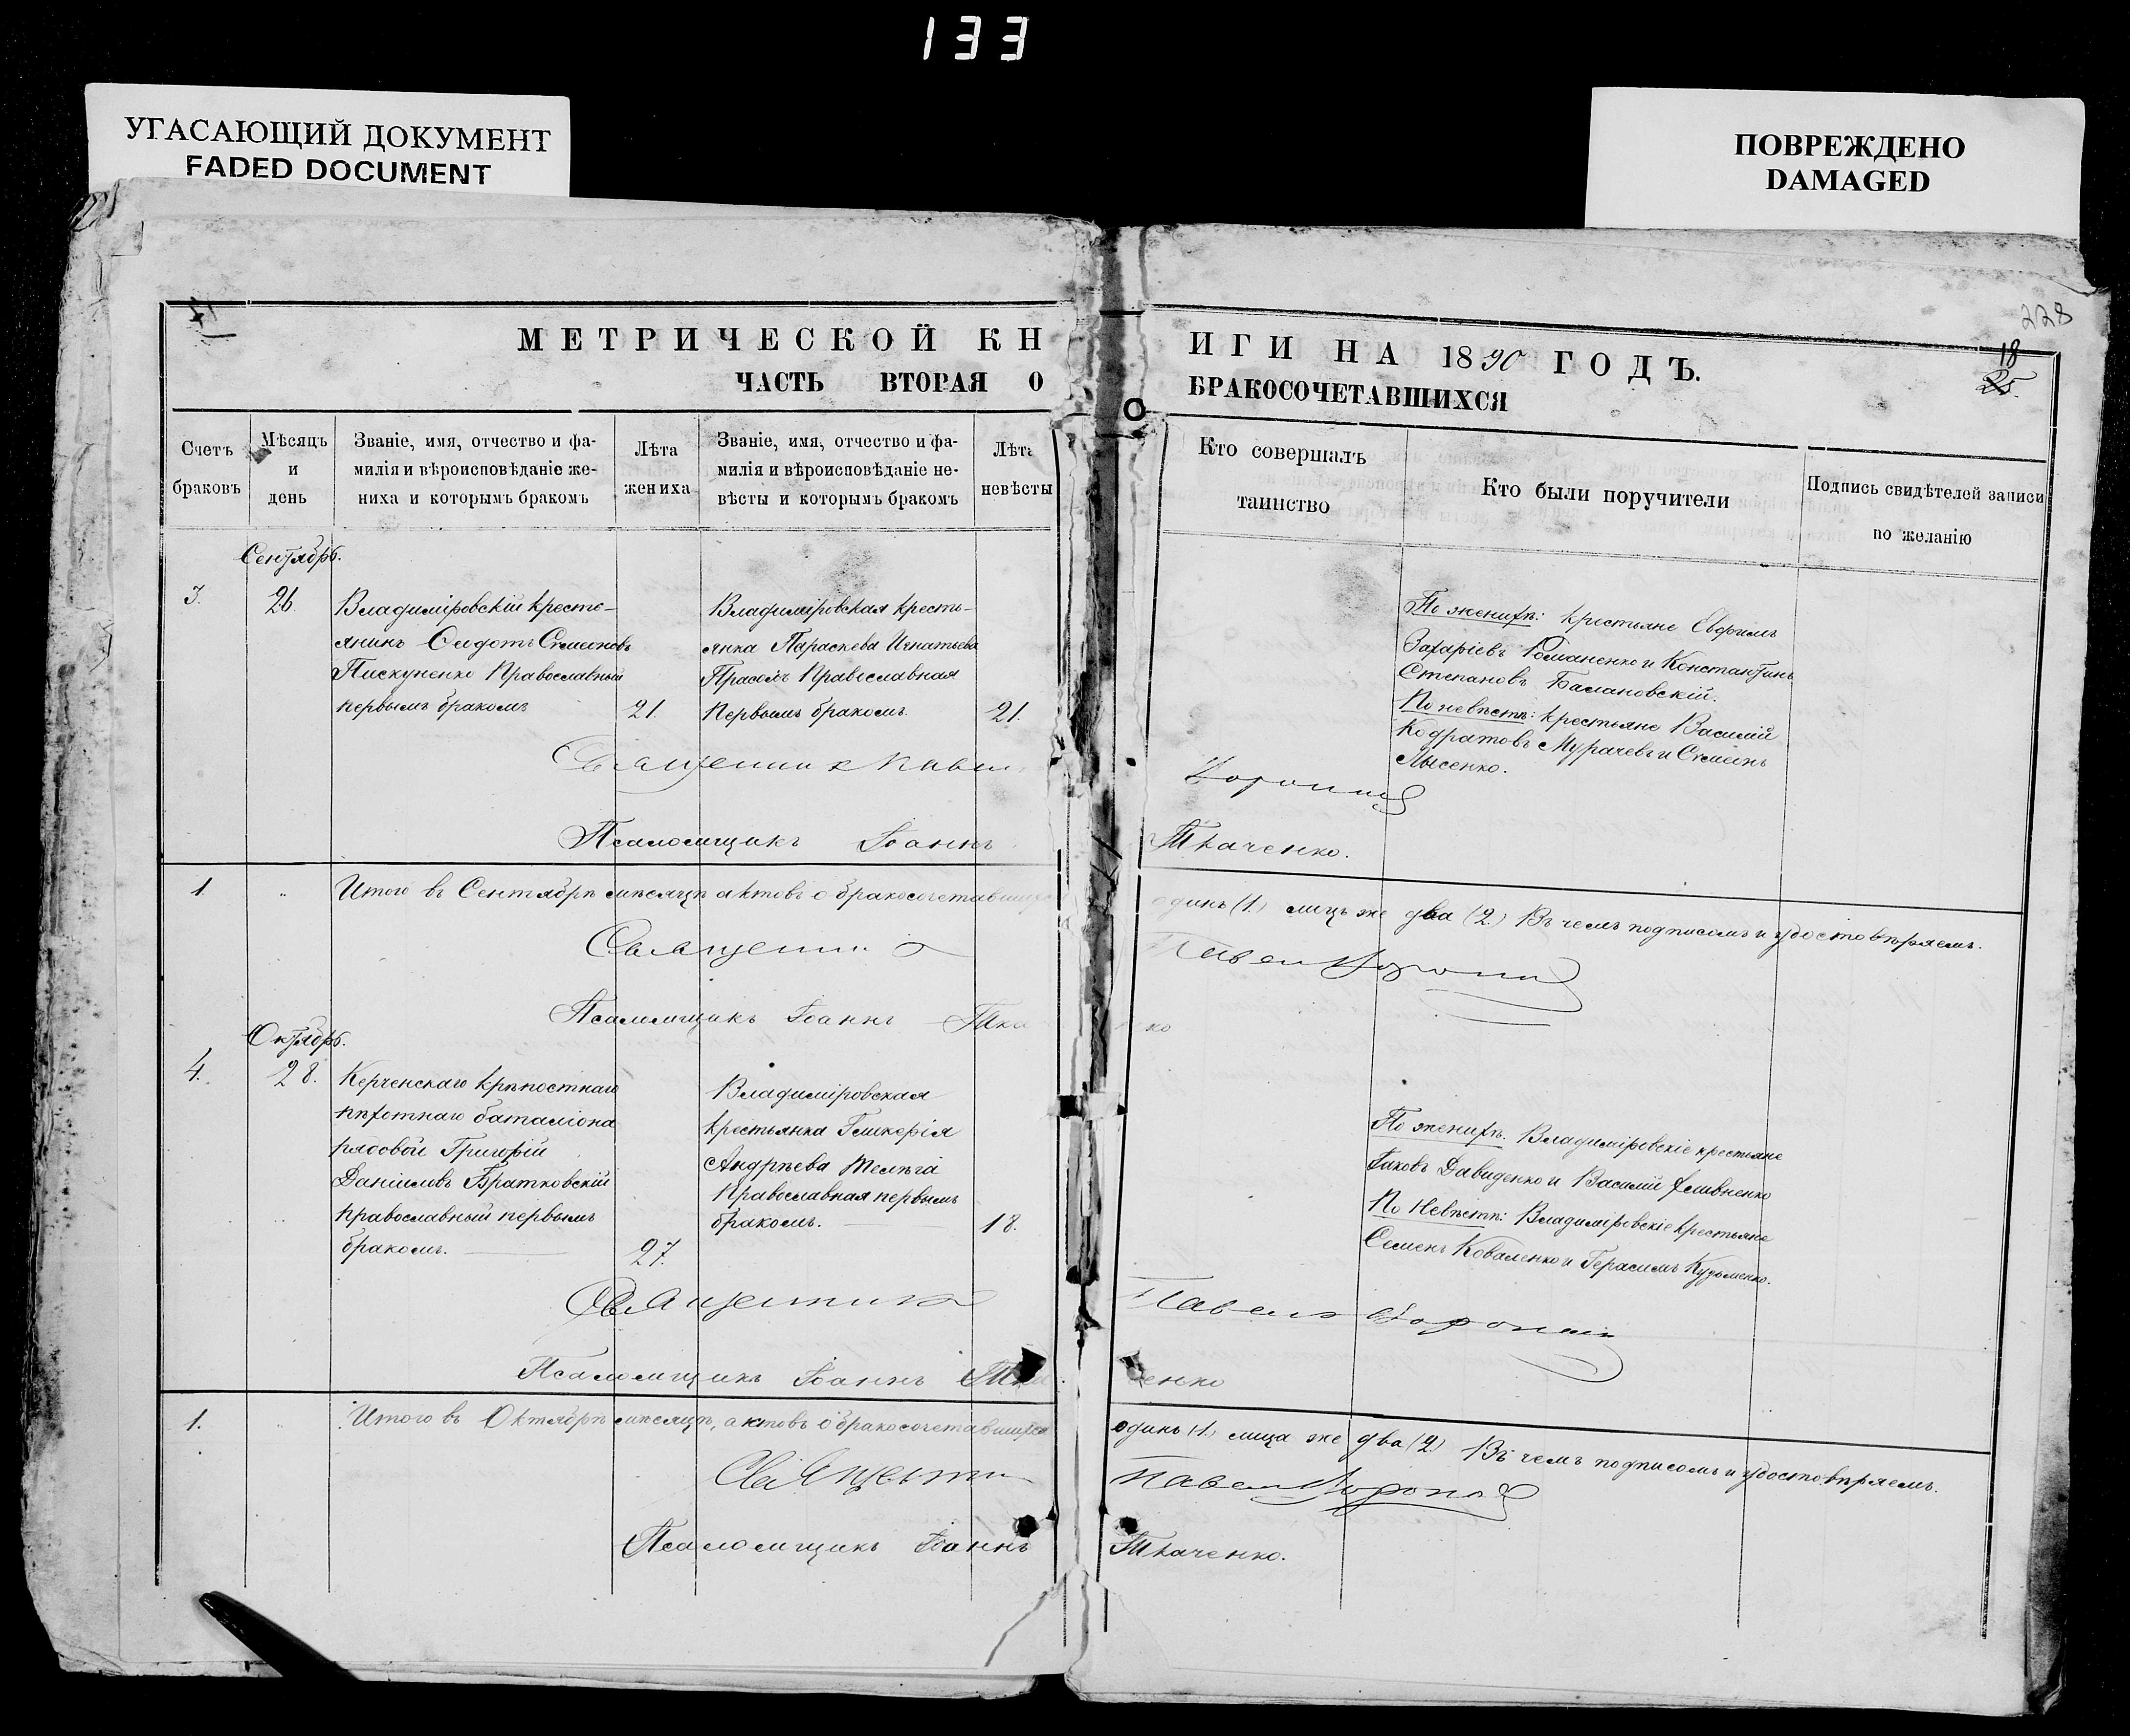 133
УГАСАЮЩИЙ ДОКУМЕНТ
FADED DOCUMENT
ПОВРЕЖДЕНО
DAMAGED
228
18
25.
МЕТРИЧЕСКОЙ КН
ИГИ НА 1890 ГОДЪ.
ЧАСТЬ ВТОРАЯ О
БРАКОСОЧЕТАВШИХСЯ
Счетъ
браковъ
Мѣсяцъ
и
день
Званіе, имя, отчество и фа-
милія и вѣроисповѣданіе же-
ниха и которымъ бракомъ
Лѣта
жениха
Званіе, имя, отчество и фа-
милія и вѣроисповѣданіе не-
вѣсты и которымъ бракомъ
Лѣта
невѣсты
Кто совершалъ
таинство
Кто были поручители
Подпись свидѣтелей записи
по желанію
Сентябрь.
3.
26.
Владиміровскій кресть-
янинъ Семеновъ
Пискуненко Православный
первымъ бракомъ
21.
Владиміровская кресть-
янка Параскева Игнатьева
Православная
Первымъ бракомъ.
21.
По женихѣ: крестьяне Евфимъ
Захаріевъ Романенко и Константинъ
Степановъ Балановскій.
По невѣстѣ: крестьяне Василій
Кодратовъ Мурачевъ и Семенъ
Лысенко.
Священникъ Павелъ
Псаломщикъ Іоаннъ
Ткаченко.
1.
Итого въ Сентябрѣ мѣсяцѣ актовъ о бракосочетавшихся
одинъ (1.) лицъ же два (2.) Въ чемъ подписомъ и удостовѣряемъ.
Священникъ
Павелъ
Псаломщикъ Іоаннъ Тка
ко
Октябрь.
4.
28.
Керченскаго крѣпостнаго
пѣхотнаго баталіона
рядовой Григорій
Даніиловъ Братковскій
православный первымъ
бракомъ.
27.
Владиміровская
крестьянка Гликерія
Андрѣева
Православная первымъ
бракомъ.
18.
По женихѣ. Владиміровскіе крестьяне
Іаковъ Давиденко и Василій
По Невѣстѣ: Владиміровскіе крестьяне
Семенъ Коваленко и Герасимъ Кузьменко.
Священникъ
Павелъ
Псаломщикъ Іоаннъ Тка
енко
1.
Итого въ Октябрѣ мѣсяцѣ, актовъ о бракосочетавшихся
одинъ (1.) лица же два (2.) Въ чемъ подписомъ и удостовѣряемъ.
Священник
Павелъ
Псаломщикъ Іоаннъ
Ткаченко.